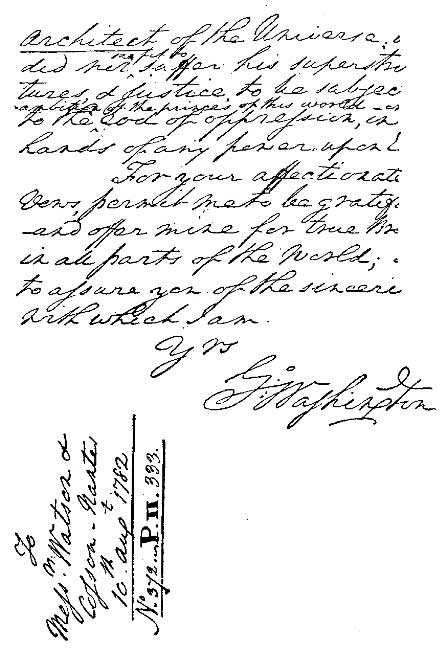 Architect of the Universe;
did not suffer his superstru
tures, & justice, to be subjec
ambition of the princes of this world – or
to the rod of oppression, in
hands of any power upon
For your affectionate
Vows, permit me to be gratef
– and offer mine for true Br
in all parts of the World;
to assure you of the sinceri
with which I am.
Yrs
Go Washington
To
Messrs Watson &
Cosson – Nantes
10th augt 1782
No 372 ... P. II. 333.